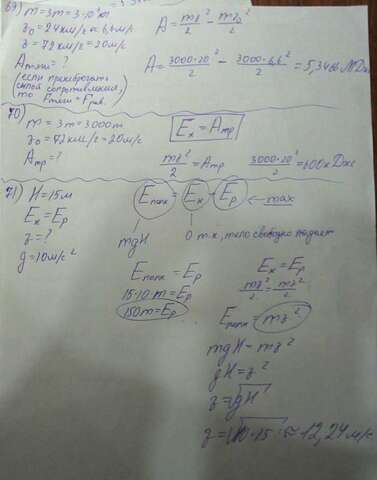 69) m = 3т = 3·10³ кг
v₀ = 24 км/ч ≈ 6,6 м/с
v = 72 км/ч = 20 м/с
Aтяги = ?
(если пренебрегать
силой сопротивления,
то Fтяги = Fрав.)
A = mv²/2 - mv₀²/2
A = 3000·20²/2 - 3000·6,6²/2 = 5,3466 МДж
70)
m = 3т = 3000
v₀ = 72 км/ч = 20 м/с
Aтр = ?
Eк = Aтр
mv²/2 = Aтр
3000·20²/2 = 600 кДж
71) H = 15м
Eк = Eр
v = ?
g = 10 м/с²
Eполн = Eк = Eр ← max
mgH
0 т.к. тело свободно падает
Eполн = Eр
15·10·m = Eр
150m = Eр
Eк = Eр
mv²/2 = mv²/2
Eполн = mv²
mgH = mv²
gH = v²
v = √gH
v = √10·15 ≈ 12,24 м/с